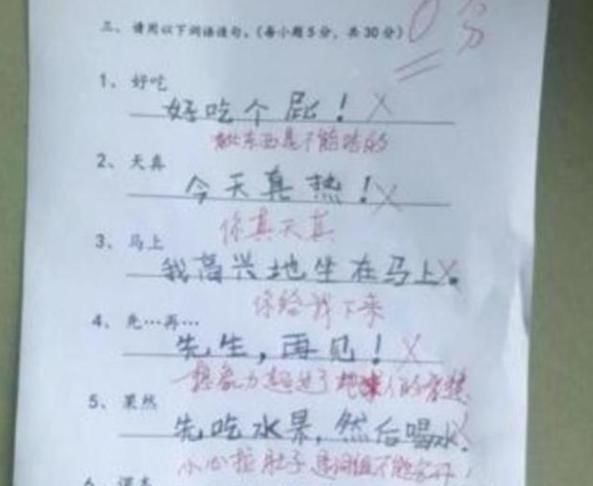 三、请用以下词语造句。(每小题5分，共30分) 0分
1、好吃
好吃个屁！
东西是不能吃的
2、天真
今天真热！
你真天真
3、马上
我高兴地坐在马上。
你给我下来
4、先…再…
先生，再见！
想象力超过了地球人的智慧
5、果然
先吃水果，然后喝水.
小心拉肚子 是词组不能分开！
6、课本